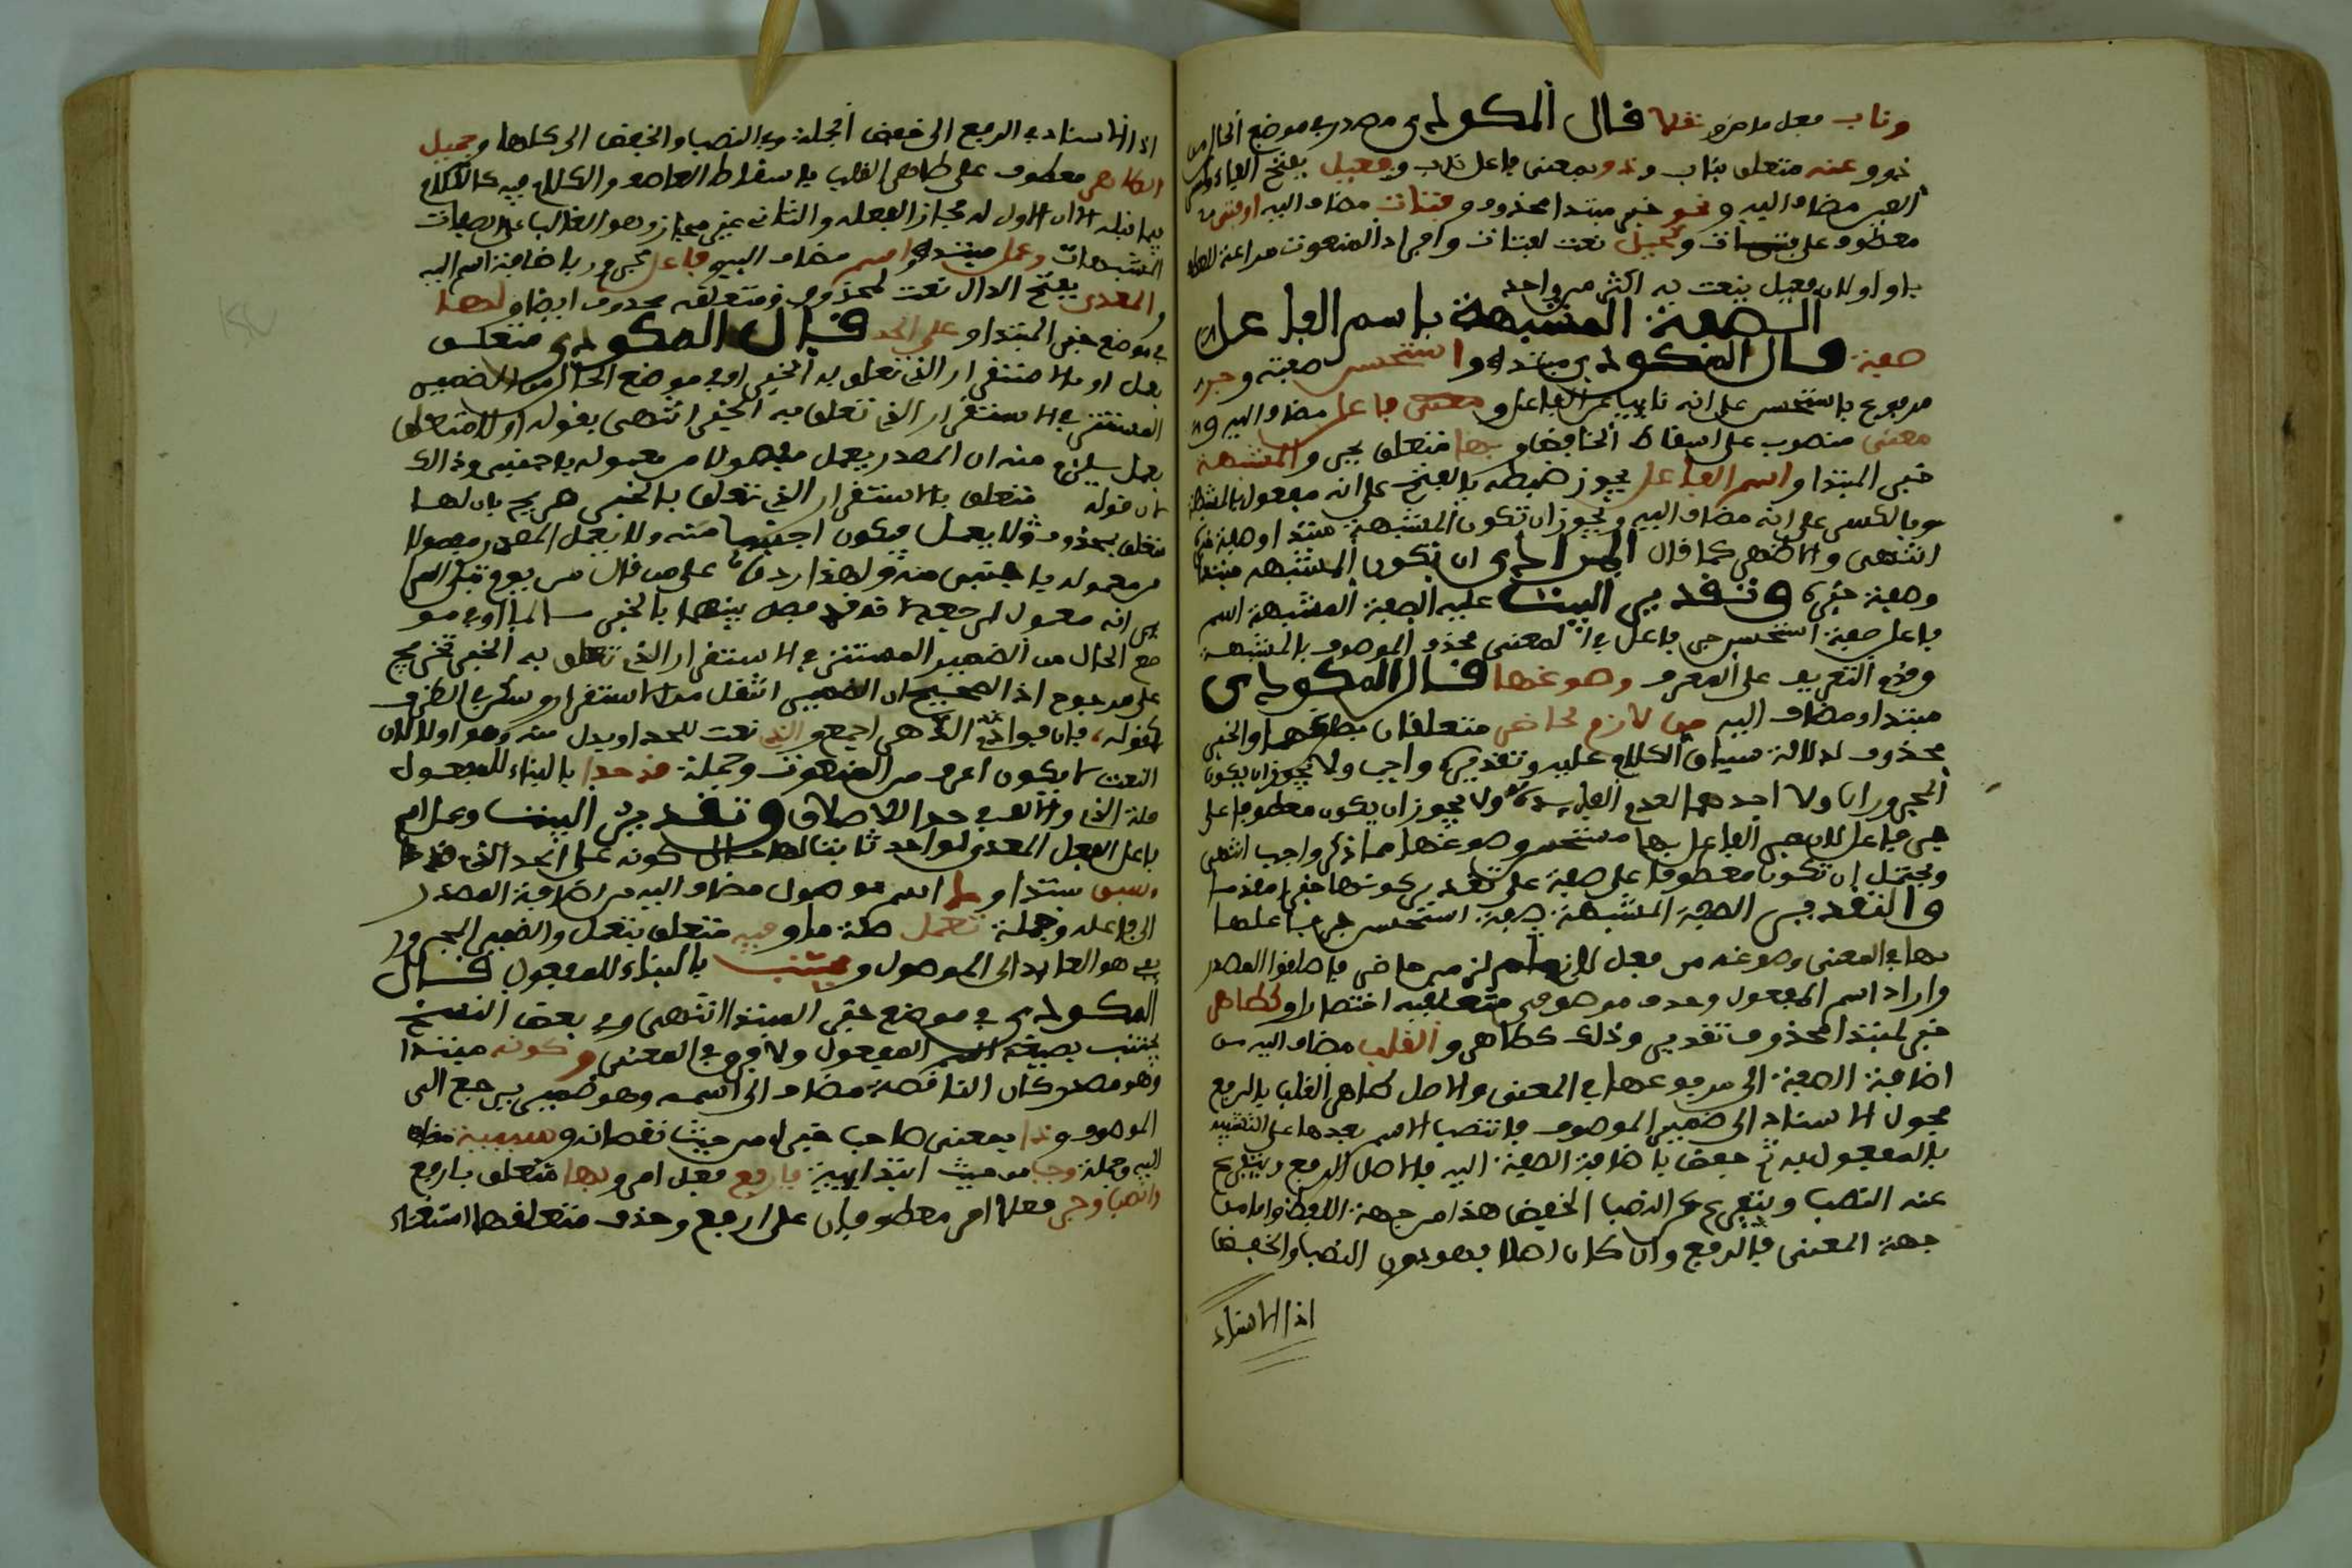 وناب فعل ماض ونقلا قال المكودي مصدر في موضع الحال من
ذو وعنه متعلق بناب وذو بمعنى فاعل ناب وفعيل بفتح الفاء وكسر
العين مضاف اليه ونحو خبر مبتدا محذوف وفتاة مضاف اليه او فتى
معطوف على فتاة وكحيل نعت لفتاة وافراد المنعوت مراعة للعطف
باو او لان فعيل ينعت به اكثر من واحد
الصفة المشبهة باسم الفاعل
صفة قال المكودي مبتدا واستحسن صفته وجر
مرفوع باستحسن على انه نايب عن الفاعل و فاعل مضاف اليه و
معنى منصوب على اسقاط الخافض وبها متعلق بجر والمشبهة
خبر المبتدا واسم الفاعل يجوز ضبطه بالفتح على انه مفعول بالمشبهة
وبالكسر على انه مضاف اليه ويجوز ان تكون المشبهة مبتدا وصفة خبر
انتهى والاظهر كما قال المرادي ان تكون المشبهة مبتدا
وصفة خبره وتقدير البيت عليه الصفة المشبهة اسم
فاعل صفة استحسن جر فاعل في المعنى محذوف الموصوف بالمشبهة
التعريف على المعرف وصوغها قال المكودي
مبتدا ومضاف اليه من لازم لحاضر متعلقان بصوغها والخبر
محذوف لدلالة سياق الكلام عليه وتقديره واجب ولا يجوز ان يكون
المجروران ولا احدهما لعدم الفايدة ولا يجوز ان يكون معطوفا على
جر فاعل لان جر الفاعل بها مستحسن وصوغها مما ذكر واجب انتهى
ويحتمل ان تكون معطوفا على صفة على تقدير كونها خبرا مقدما
والتقدير الصفة المشبهة صفة استحسن جر فاعلها
بها في المعنى وصوغه من فعل لازم لزمن حاضر فاضافوا المصدر
واراد اسم المفعول وحذف موصوف متعلقيه اختصارا وكطاهر
خبر لمبتدا محذوف تقديره وذلك كطاهر والقلب مضاف اليه من
اضافة الصفة الى مرفوعها في المعنى والاصل كطاهر القلب بالرفع
محول الاسناد الى ضمير الموصوف فانتصب الاسم بعدها على التشبيه
بالمفعول به ثم خفض باضافة الصفة اليه فالاصل الرفع ويتفرع
عنه النصب ويتفرع عن النصب الخفض هذا من جهة اللفظ واما من
جهة المعنى فالرفع وان كان اصلا فهو دون النصب والخفض
اذ الاسناد
اذ الاسناد في الرفع الى بعض الجملة وفي النصب والخفض الى كلها وجميل
الظاهر معطوف على طاهر القلب باسقاط العاطف والكلام فيه كالكلام
فيما قبله الا ان الاول له مجاز الفعلة والثاني غير مجاز وهو الغالب على الصفات
المشبهات وعمل مبتدا واسم مضاف اليه وفاعل مجرور باضافة اسم اليه
والمعدى بفتح الدال نعت لمحذوف ومتعلقه محذوف ايضا ولها
في موضع خبر المبتدا وعلى الحد قال المكودي متعلق
بعمل او بالاستقرار الذي تعلق به الخبر او في موضع الحال من الضمير
المستتر في الاستقرار الذي تعلق به الخبر انتهى بقوله او لا متعلق
بعمل يلزم منه ان المصدر يعمل مفصولا من معموله باجنبي وذالك
لان قوله متعلق بالاستقرار الذي تعلق به الخبر صريح بان لها
متعلق بمحذوف ولا بعمل فيكون اجنبيا منه ولا يعمل المصدر مفصولا
من معموله باجنبي منه ولهذا رد على من قال من يوم تبلى السراير
انه معمول لرجعه لانه قد فصل بينهما بالخبر
ضع الحال من الضمير المستتر في الاستقرار الذي تعلق به الخبر تخريج
على مرجوح اذ الصحيح ان الضمير انتقل من الاستقرار وسكن في الظرف
كقوله فان فوادي عندك الدهر اجمع والذي نعت للحد او بدل منه وهو اولا لان
النعت لا يكون اعرف من المنعوت وجملة قد حدا بالبناء للمفعول
صلة الذي والالف في حدا للاطلاق وتقدير البيت وعمل اسم
فاعل الفعل المعدى لواحد ثابت لها حال كونه على الحد الذي قد حدا
وسبق مبتدا وما اسم موصول مضاف اليه من اضافة المصدر
الى فاعله وجملة تعمل صلة ما وفيه متعلق بتعمل والضمير المجرور
بفي هو العايد الى الموصول ومجتنب بالبناء للمفعول قال
المكودي في موضع خبر المبتدا انتهى وفي بعض النسخ
يجتنب بصيغة المفعول ولا فرق في المعنى وكونه مبتدا
وهو مصدر كان الناقصة مضاف الى اسمه وهو ضمير يرجع الى
الموصوف وذا بمعنى صاحب خبره من حيث نقصانه وسببية مضاف
اليه وجملة وجب من حيث ابتداييته فارفع فعل امر وبها متعلق بارفع
وانصب وجر فعلا امر معطوفان على ارفع وحذف متعلقهما استغناء